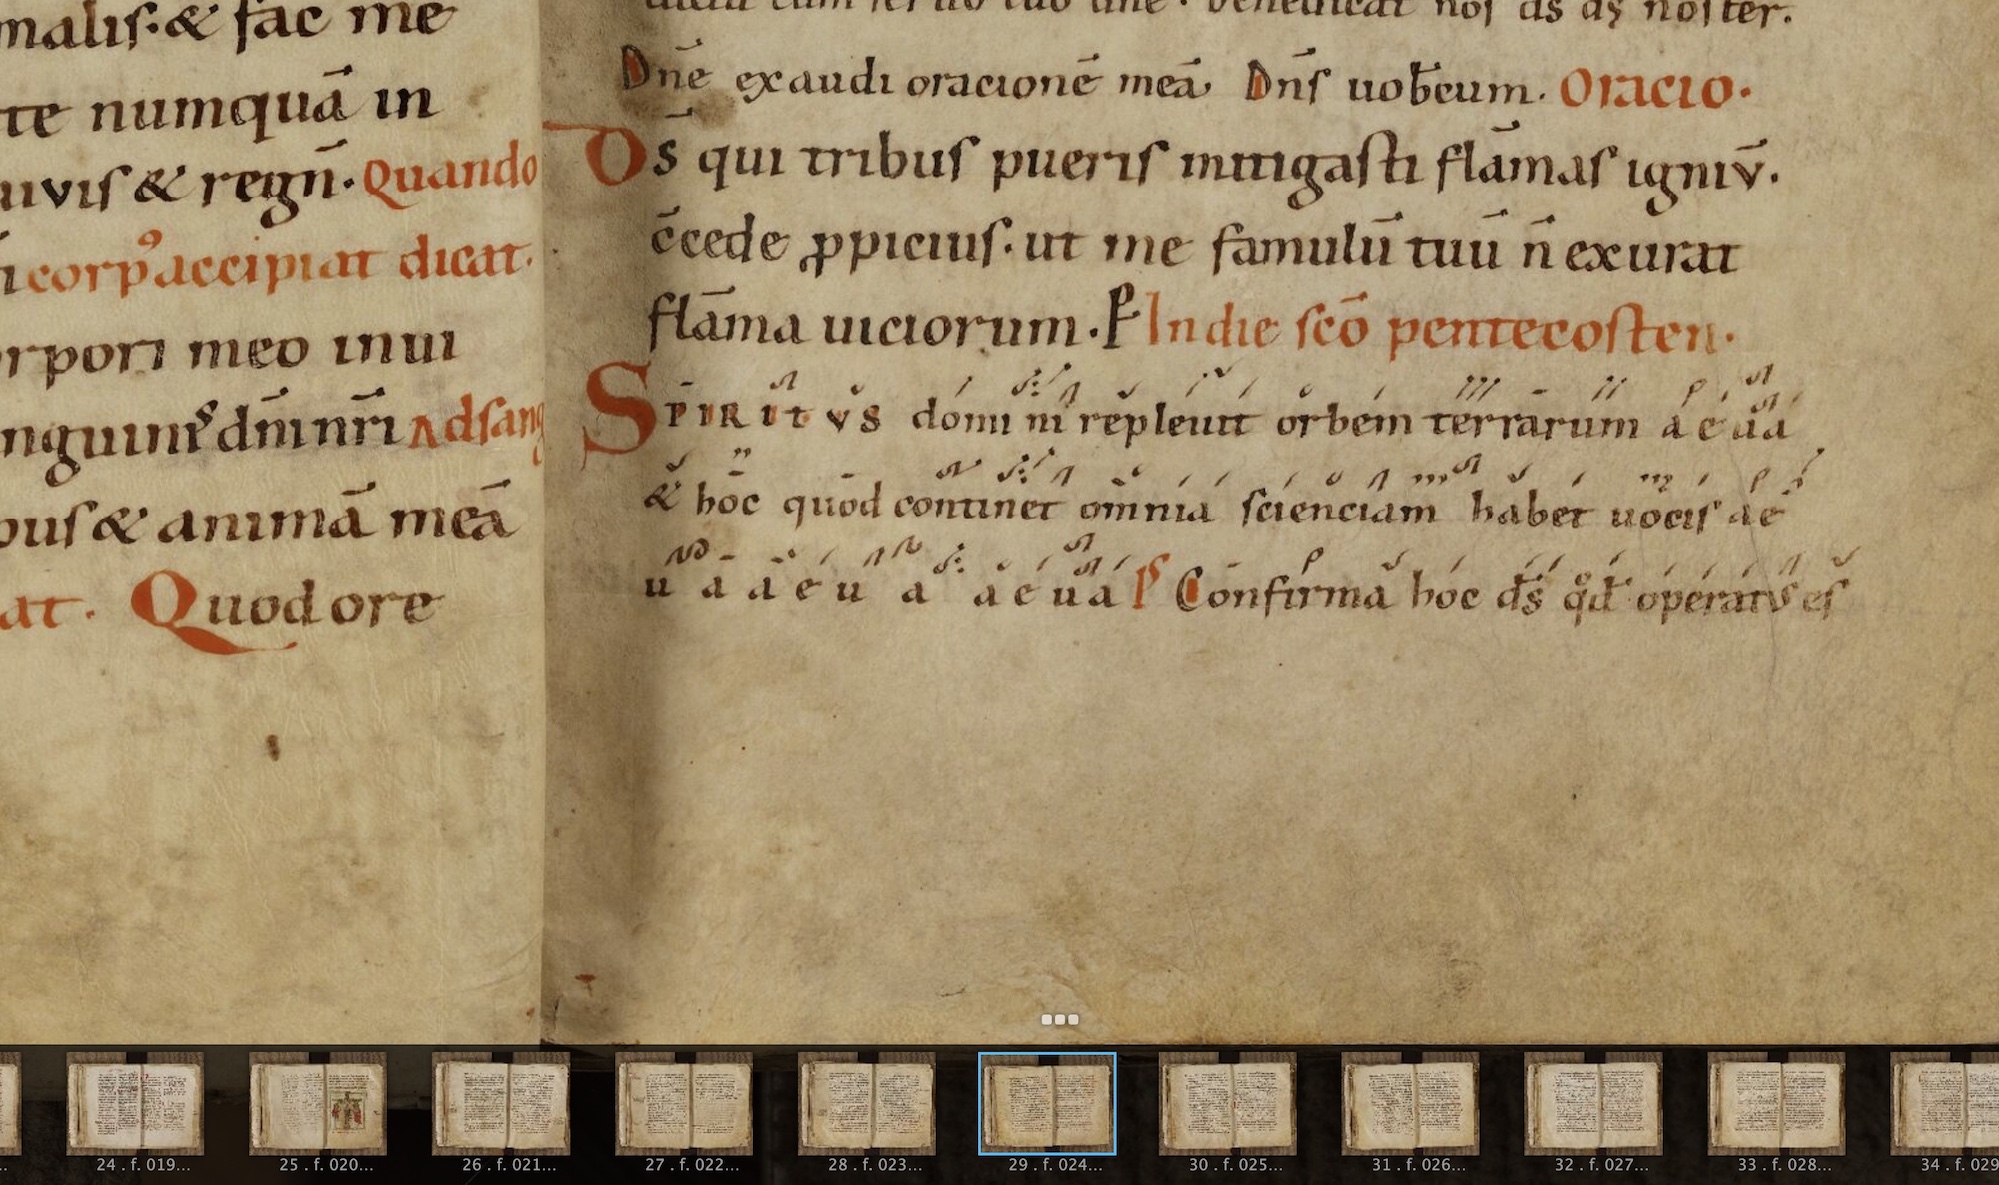 malis·& fac me
te numquā in
uvis & regn̄·Quando
corpꝰ accipiat dicat·
rpori meo inui
nguinis dn̄inr̄i Adsang
bus & animā meā
at. Quod ore
cum seruo tuo dne· benedicat nos ds ds noster.
Dn̄e exaudi oracionē meā Dn̄s uob̄cum. Oracio.
Ds̄ qui tribus pueris mitigasti flāmas igniv̄.
c̄cede ꝓpicius·ut me famulū tuū n̄ exurat
flāma uiciorum.P̄ In die scō pentecosten·
SPIRITVS domini repleuit orbem terrarum a e u a
& hoc quod continet omnia scienciam habet uocis a e
u a a e u a a e u a Ps Confirma hoc ds̄ qd̄ operatꝰ es
24 . f. 019... 25 . f. 020... 26 . f. 021... 27 . f. 022... 28 . f. 023... 29 . f. 024... 30 . f. 025... 31 . f. 026... 32 . f. 027... 33 . f. 028... 34 . f. 029